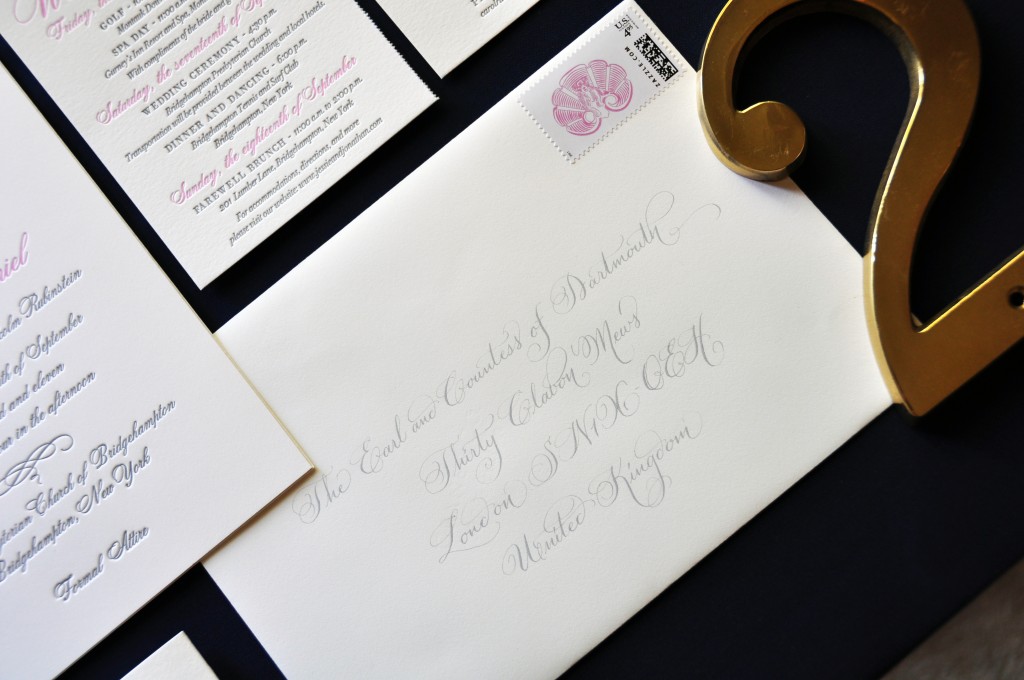 Friday, the
GOLF -
SPA DAY - 11:00 a.m.
Gurney's Inn Resort and Spa,
With compliments of the bride and
Saturday, the seventeenth of September
WEDDING CEREMONY - 4:30 p.m.
Bridgehampton Presbyterian Church
Transportation will be provided between the wedding and local hotels
DINNER AND DANCING - 6:00 p.m.
Bridgehampton Tennis and Surf Club
Bridgehampton, New York
Sunday, the eighteenth of September
FAREWELL BRUNCH - 11:00 a.m. to 2:00 p.m.
201 Lumber Lane, Bridgehampton, New York
For accommodations, directions, and more
please visit our website: www.jessieandjonathan.com
Rubinstein
of September
and eleven
in the afternoon
Church of Bridgehampton
Bridgehampton, New York
Formal Attire
US
ZAZZLE.COM
The Earl and Countess of Dartmouth
Thirty Clabon Mews
London SN1X OEH
United Kingdom
2